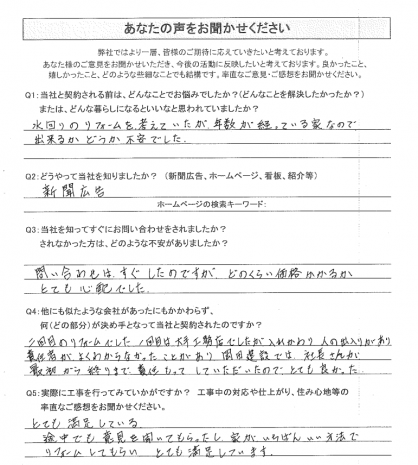 あなたの声をお聞かせください
弊社ではより一層、皆様のご期待に応えていきたいと考えております。
あなた様のご意見をお聞かせいただき、今後の活動に反映したいと考えております。良かったこと、
嬉しかったこと、どのような些細なことでも結構です。率直なご意見・ご感想をお聞かせください。
Q1:当社と契約される前は、どんなことでお悩みでしたか？(どんなことを解決したかったか？)
または、どんな暮らしになるといいなと思われていましたか？
水回りのリフォームを考えていたが、年数が経っている家なので
出来るかどうか不安でした。
Q2:どうやって当社を知りましたか？ （新聞広告、ホームページ、看板、紹介等）
新聞広告
ホームページの検索キーワード：
Q3:当社を知ってすぐにお問い合わせをされましたか？
されなかった方は、どのような不安がありましたか？
問い合わせは、すぐしたのですが、どのくらい価格がかかるか
とても心配でした。
Q4:他にも似たような会社があったにもかかわらず、
何(どの部分)が決め手となって当社と契約されたのですか？
二回目のリフォームでした 1回目は大手工務店でしたが入れかわり人の出入りがあり
責任者が、よくわからなかったことがあり 岡田建設では、社長さんが
最初から終りまで責任もってしていただいたので、とても良かった。
Q5:実際に工事を行ってみていかがですか？ 工事中の対応や仕上がり、住み心地等の
率直なご感想をお聞かせください。
とても満足している
途中でも意見を聞いてもらったし 家がいちばんいい方法で
リフォームしてもらい とても満足しています。